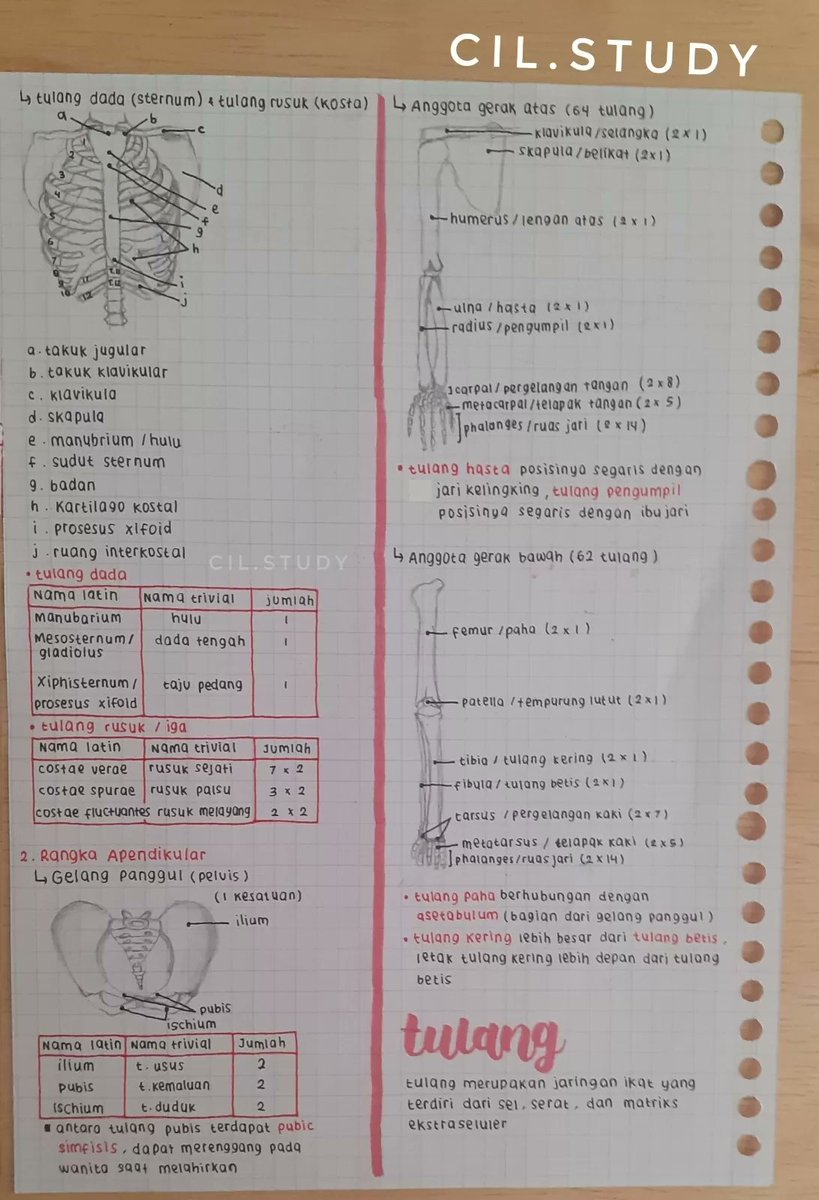 CIL.STUDY
↳ tulang dada (sternum) & tulang rusuk (kosta)
a
b
c
d
e
f
g
h
i
j
1
2
3
4
5
6
7
8
9
10
11
12
a. takuk jugular
b. takuk klavikular
c. klavikula
d. skapula
e. manubrium / hulu
f. sudut sternum
g. badan
h. kartilago kostal
i. prosesus xifoid
j. ruang interkostal
CIL.STUDY
• tulang dada
Nama latin Nama trivial jumlah
Manubarium hulu 1
Mesosternum/ dada tengah 1
gladiolus
Xiphisternum/ taju pedang 1
prosesus xifoid
• tulang rusuk / iga
Nama latin Nama trivial Jumlah
costae verae rusuk sejati 7 x 2
costae spurae rusuk palsu 3 x 2
costae fluctuantes rusuk melayang 2 x 2
2. Rangka Apendikular
↳ Gelang panggul (pelvis)
(1 kesatuan)
ilium
pubis
ischium
Nama latin Nama trivial Jumlah
ilium t. usus 2
pubis t. kemaluan 2
ischium t. duduk 2
▪ antara tulang pubis terdapat pubic
simfisis, dapat merenggang pada
wanita saat melahirkan
↳ Anggota gerak atas (64 tulang)
klavikula/selangka (2 x 1)
skapula/belikat (2x1)
humerus/lengan atas (2 x 1)
ulna/hasta (2 x 1)
radius/pengumpil (2x1)
carpal/pergelangan tangan (2 x 8)
metacarpal/telapak tangan (2 x 5)
phalanges/ruas jari (2 x 14)
• tulang hasta posisinya segaris dengan
jari kelingking, tulang pengumpil
posisinya segaris dengan ibu jari
↳ Anggota gerak bawah (62 tulang)
femur/paha (2 x 1)
patella/tempurung lutut (2x1)
tibia/tulang kering (2 x 1)
fibula/tulang betis (2x1)
tarsus/pergelangan kaki (2x7)
metatarsus/telapak kaki (2x5)
phalanges/ruas jari (2x14)
• tulang paha berhubungan dengan
asetabulum (bagian dari gelang panggul)
• tulang kering lebih besar dari tulang betis,
letak tulang kering lebih depan dari tulang
betis
tulang
tulang merupakan jaringan ikat yang
terdiri dari sel, serat, dan matriks
ekstraseluler